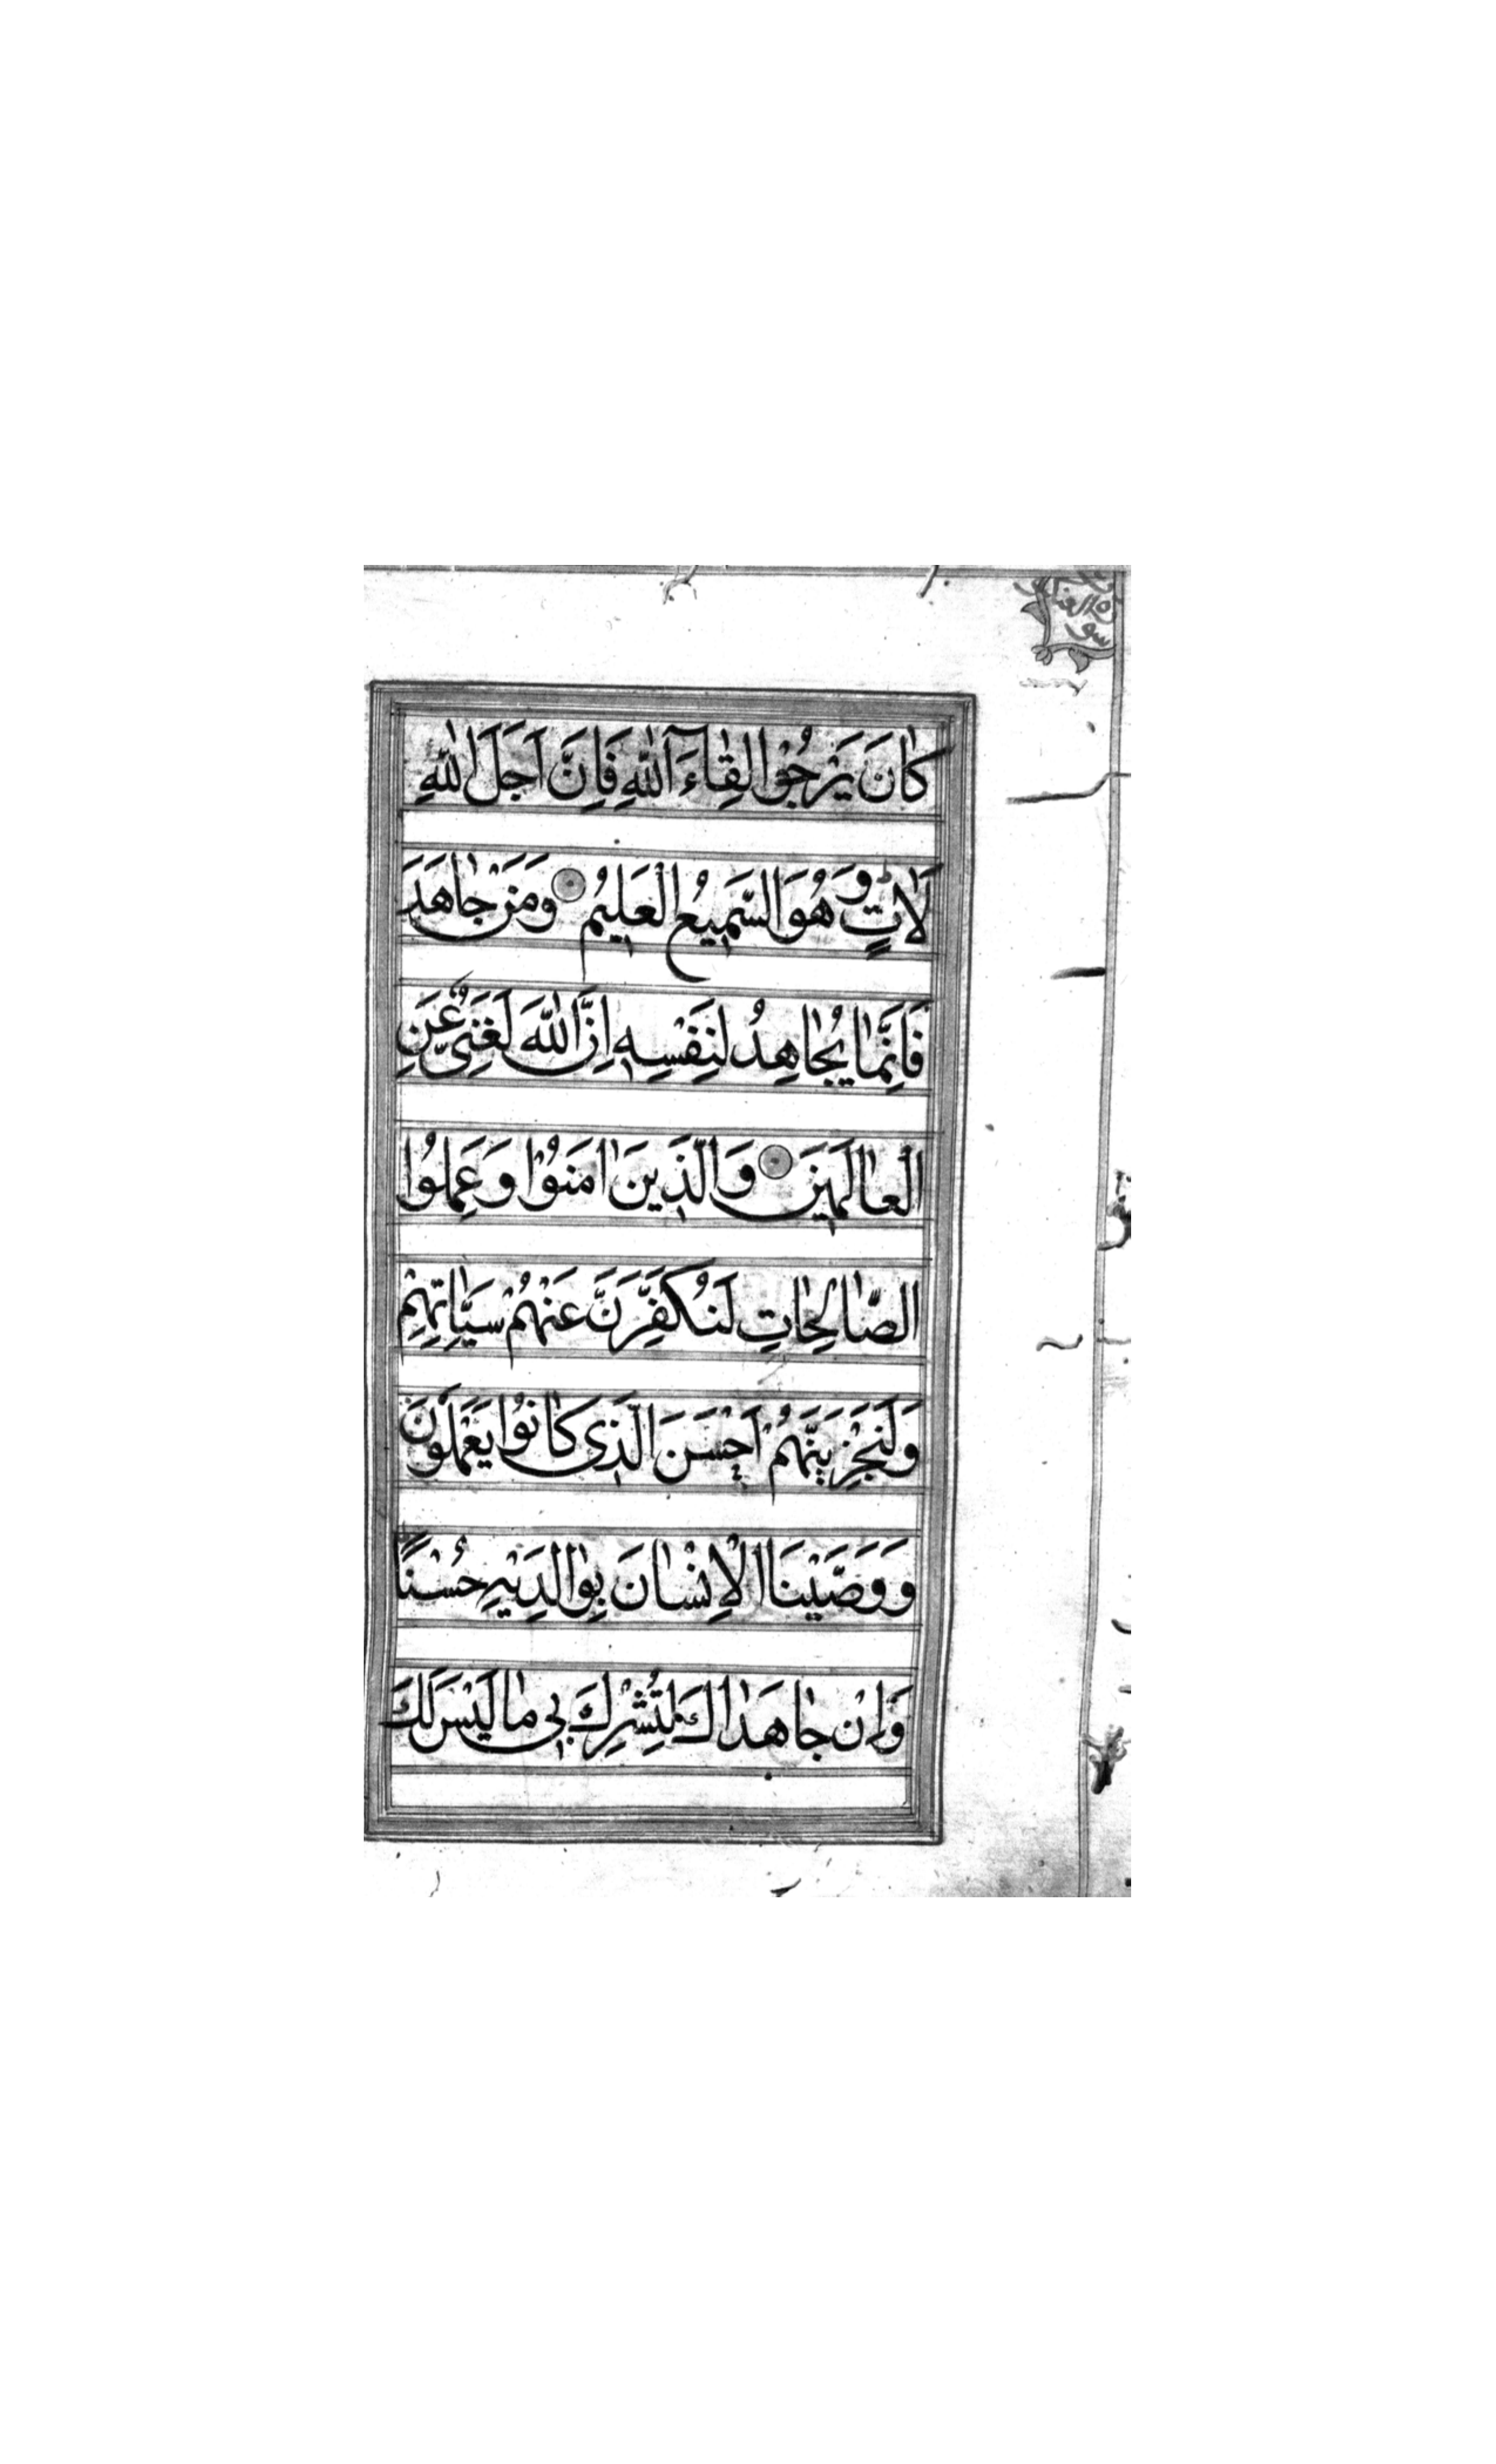 سورة العنكبوت
كَانَ يَرْجُوا لِقَاءَ اللهِ فَاِنَّ اَجَلَ اللهِ
لَاٰتٍ وَهُوَ السَّمِيعُ الْعَلِيمُ وَمَنْ جَاهَدَ
فَاِنَّمَا يُجَاهِدُ لِنَفْسِهِ اِنَّ اللهَ لَغَنِيٌّ عَنِ
الْعَالَمِينَ وَالَّذِينَ اٰمَنُوا وَعَمِلُوا
الصَّالِحَاتِ لَنُكَفِّرَنَّ عَنْهُمْ سَيِّاٰتِهِمْ
وَلَنَجْزِيَنَّهُمْ اَحْسَنَ الَّذِى كَانُوا يَعْمَلُونَ
وَوَصَّيْنَا الْاِنْسَانَ بِوَالِدَيْهِ حُسْنًا
وَاِنْ جَاهَدَاكَ لِتُشْرِكَ بِى مَا لَيْسَ لَكَ